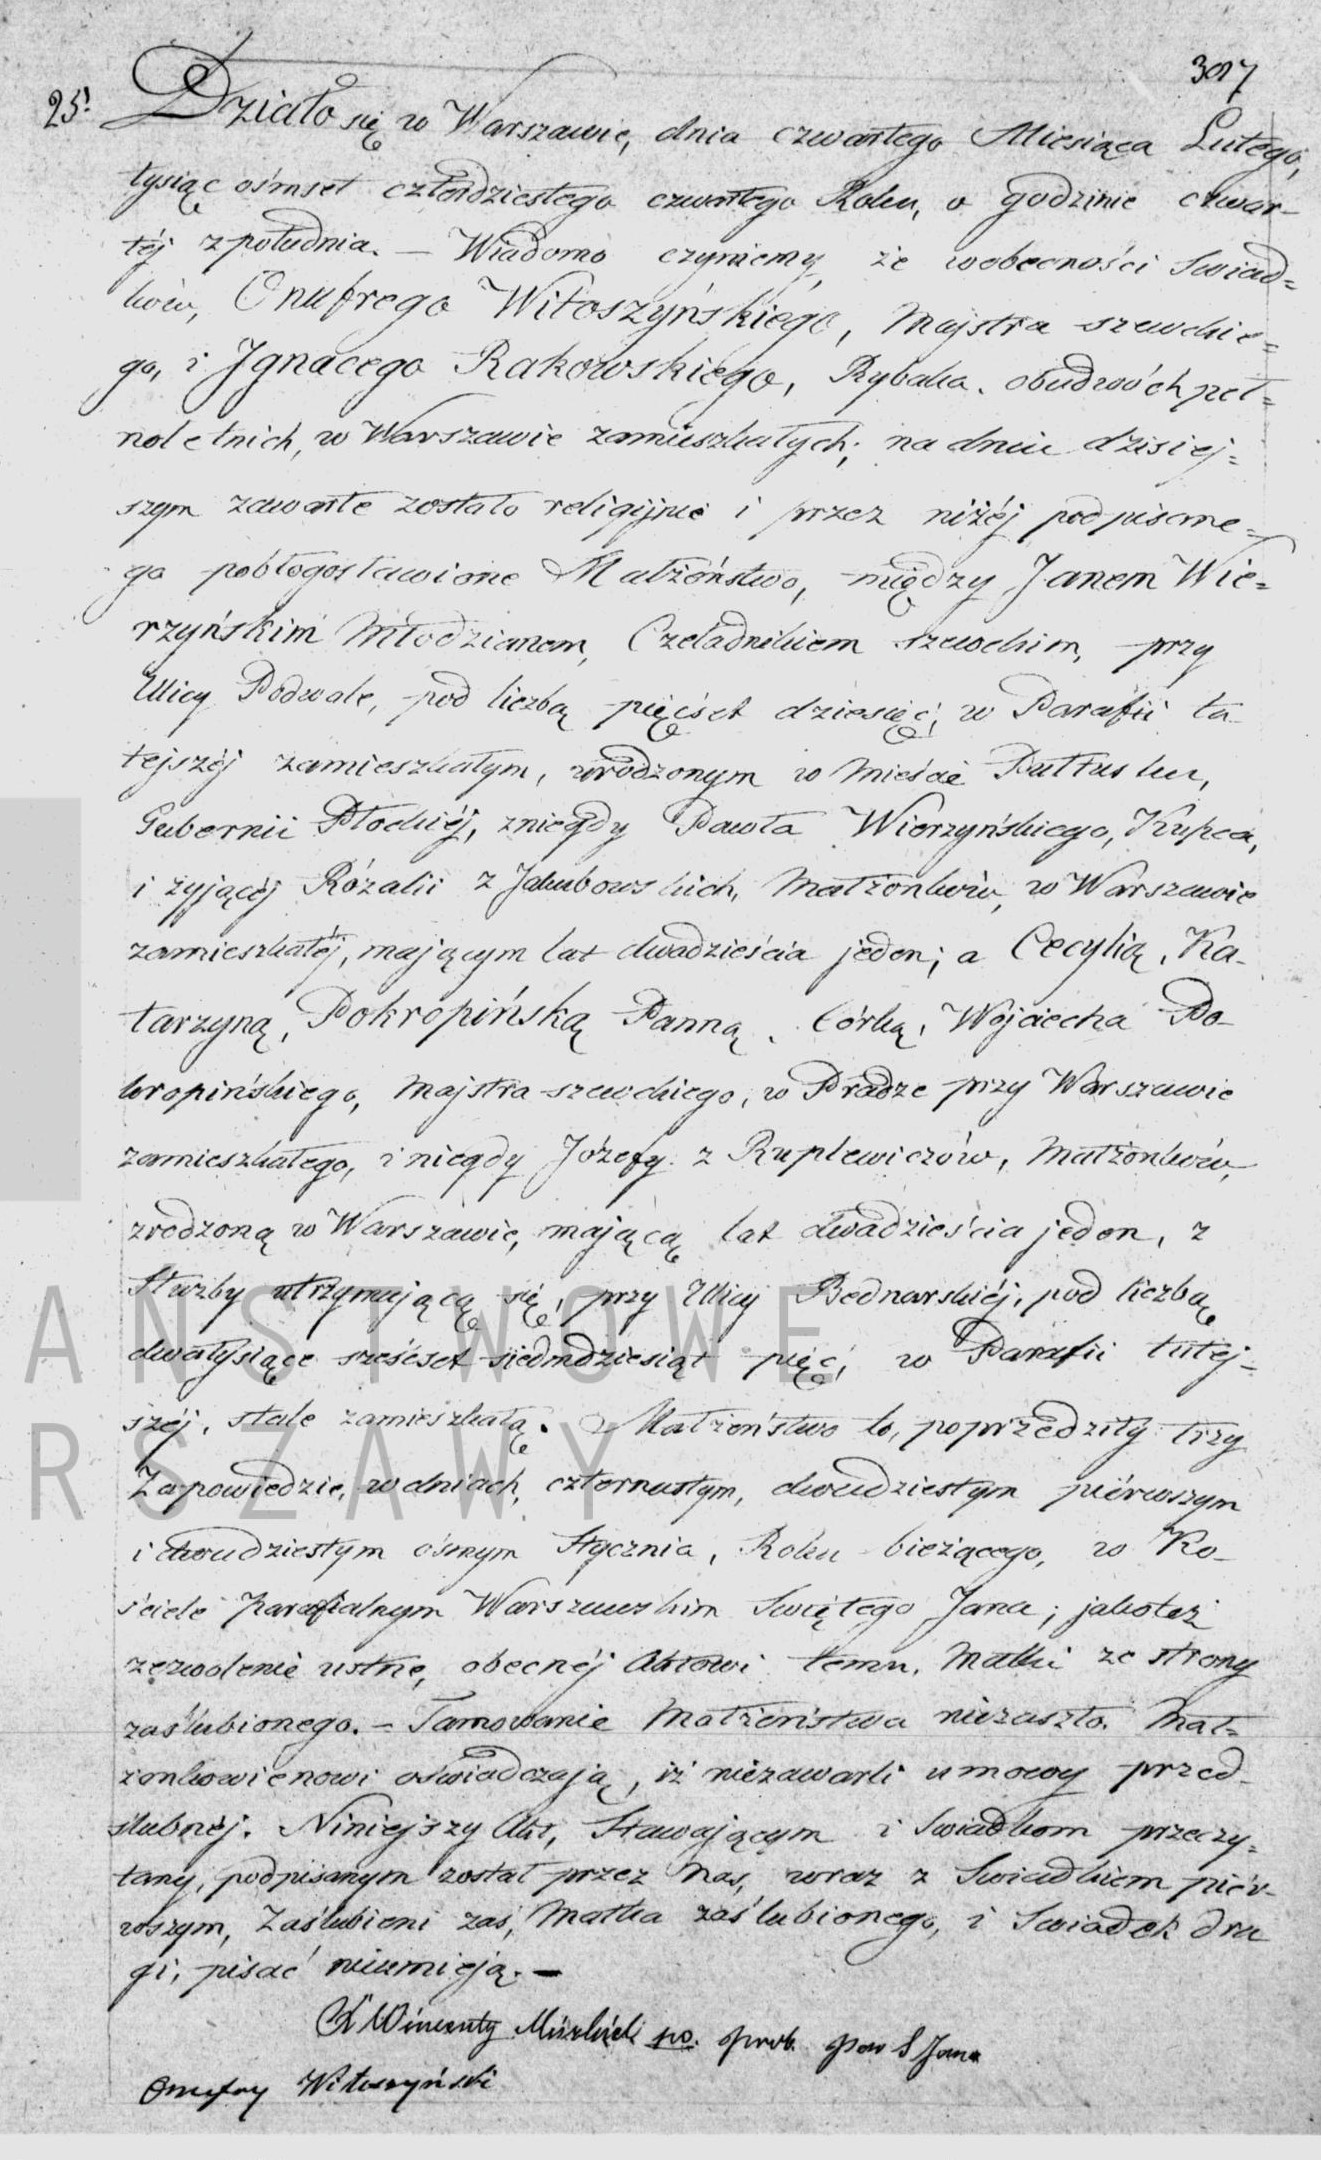 3017
25. Działo się w Warszawie, dnia czwartego Miesiąca Lutego,
tysiąc ośmset czterdziestego czwartego Roku, o godzinie czwar-
téj z południa. — Wiadomo czyniemy, że wobecności Swiad=
ków, Onufrego Witoszyńskiego, Majstra szewckie=
go, i Ignacego Rakowskiego, Rybaka, obudwóch peł=
noletnich, w Warszawie zamieszkałych; na dniu dzisiej=
szym zawarte zostało religijnie i przez niżéj podpisane=
go pobłogosławione Małżeństwo, między Janem Wie=
rzyńskim Młodzianem, Czeladnikiem szewckim, przy
Ulicy Podwale, pod liczbą pięćset dziesięć, w Parafii tu-
tejszéj zamieszkałym, urodzonym w Mieście Pułtusku,
Gubernii Płockiéj, z niegdy Pawła Wierzyńskiego, Kupca,
i żyjącéj Rózalii z Jakubowskich, Małżonków, w Warszawie
zamieszkałéj, mającym lat dwadzieścia jeden; a Cecylią, Ka-
tarzyną, Pokropińską Panną, Córką, Wojciecha Po-
kropińskiego, Majstra szewckiego, w Pradze przy Warszawie
zamieszkałego, i niegdy Józefy z Ruplewiczów, Małżonków,
zrodzoną w Warszawie, mającą lat dwadzieścia jeden, z
Służby utrzymującą się, przy Ulicy Bednarskiéj, pod liczbą
dwatysiące sześćset siedmdziesiąt pięć, w Parafii tutej=
széj, stale zamieszkałą. Małżeństwo to, poprzedziły trzy
Zapowiedzie, w dniach, czternastym, dwudziestym piérwszym
i dwudziestym ósmym Stycznia, Roku bieżącego, w Ko-
ściele Parafialnym Warszawskim Świętego Jana; jakoteż
zezwolenie ustne, obecnéj Aktowi temu, Matki ze strony
zaślubionego. — Tamowanie Małżeństwa niezaszło. Mał=
żonkowie nowi oświadczają, iż niezawarli umowy przed-
ślubnéj. Niniejszy Akt, Stawającym i Swiadkom przeczy=
tany, podpisanym został przez Nas, wraz z Swiadkiem piér-
wszym, Zaślubieni zaś, Matka zaślubionego, i Swiadek dru
gi, pisać nieumieją. —
X Wincenty po. prob. par S Jana
Onufry Witoszyński
ANSTWOWE
RSZAWY